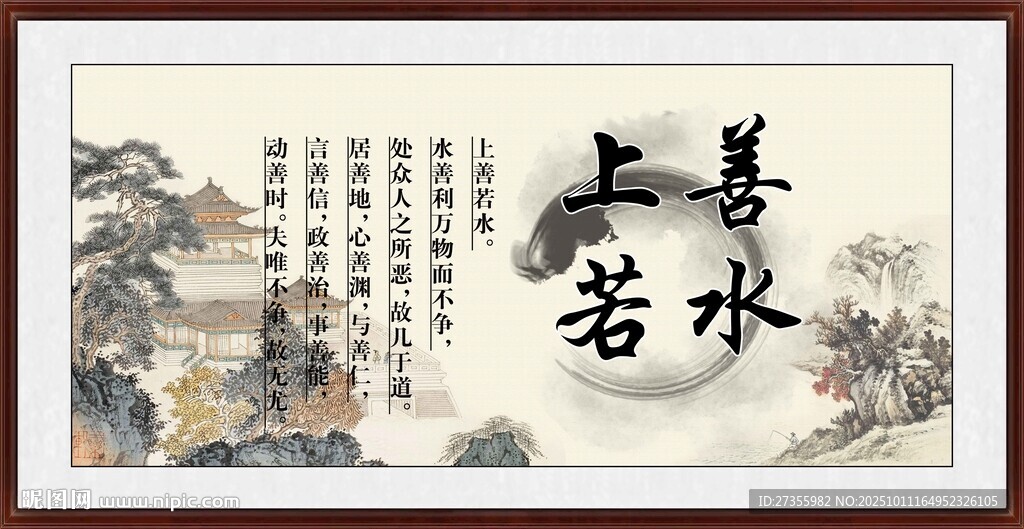 上善
若水
上善若水。
水善利万物而不争，
处众人之所恶，故几于道。
居善地，心善渊，与善仁，
言善信，政善治，事善能，
动善时。夫唯不争，故无尤。
昵图网 www.nipic.com
ID:27355982 NO:20251011164952326105